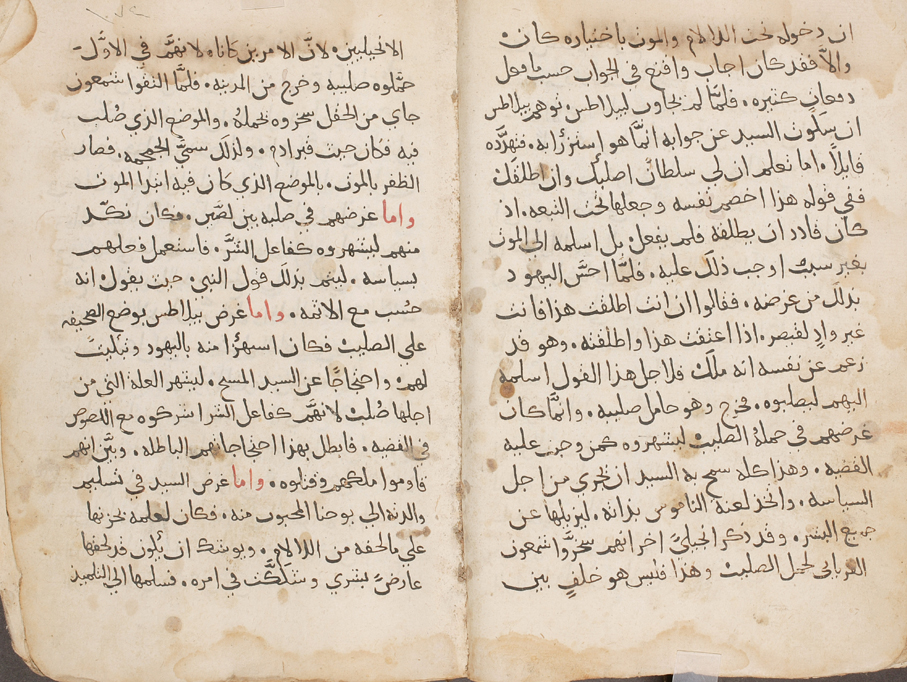 ان دخوله تحت الالام والموت باختياره كان
والاَّ فقد كان اجاب واقنع في الجواب حسب ما فعل
دفعاتٍ كثيره. فلمَّا لم يجاوب لبيلاطس. توهم بيلاطس
ان سكوت السيد عن جوابه انمَّا هو استهزاً به. فتهدَّده
قايلاً. اما تعلم ان لي سلطانً اصلبك وان اطلقك
ففي قوله هذا اخصم نفسه وجعلها تحت التبعه. اذ
كان قادر ان يطلقه فلم يفعل بل اسلمه الى الموت
بغير سبب اوجب ذلك عليه. فلمَّا احسَّ اليهود
بذلك من غرضه. فقالوا ان انت اطلقت هذا فانت
غير وادٍ لقيصر. اذا اعتقت هذا واطلقته. وهو قد
زعم عن نفسه انه ملك فلاجل هذا القول اسلمه
اليهم ليصلبوه. فخرج وهو حامل صليبه. وانمَّا كان
غرضهم في حملهُ الصليب ليشهروه كمن وجبَ عليه
القضيه. وهذا كله سمح به السيد ان يجري من اجل
السياسه. واتخذ لعنة الناموس بذاته. ليزيلها عن
جميع البشر. وقد ذكر انجيليٌ اخر انهم سخَّروا شمعون
القرياني لحمل الصليب وهذا فليس هو خلفٍ بين
الانجيليين. لانَّ الامرين كانا. لانهَّم في الاوَّل
حمَّلوه صليبه وخرج من المدينه. فلمَّا التقوا شمعون
جاي من الحقل سخروه بحملهُ. والموضع الذي صُلب
فيه فكان حيث قبر ادم. ولذلك سميَّ الجمجمه. فصار
الظفر بالموت. بالموضع الذي كان فيه ابتدا الموت
واما غرضهم في صلبه بين لصَّين. فكان نكّد
منهم ليشهروه كفاعل الشرَّ. فاستعمل فعلهم
بسياسه. ليتم بذلك قول النبي حيث يقول انه
حُسب مع الاثمه. واما غرض بيلاطس بوضع الصحيفه
علي الصليب فكان استهزًا منه باليهود وتبكيت
لهم واحتجاجًا عن السيد المسيح. ليشهر العلة التي من
اجلها صُلب لانهَّم كفاعل الشر اشركوه مع اللصوص
في القضيه. فابطل بهذا احتجاجاتهم الباطله. وبيَّن انهم
قاوموا ملكهم وقتلوه. واما غرض السيد في تسليم
والدته الي يوحنا المحبوب منه. فكان لعلمه بحزنها
علي ما لحقه من الالام. ويوشك ان يكون قد لحقها
عارضً بشري وشكَّت في امره. فسلمها الي التلميذ